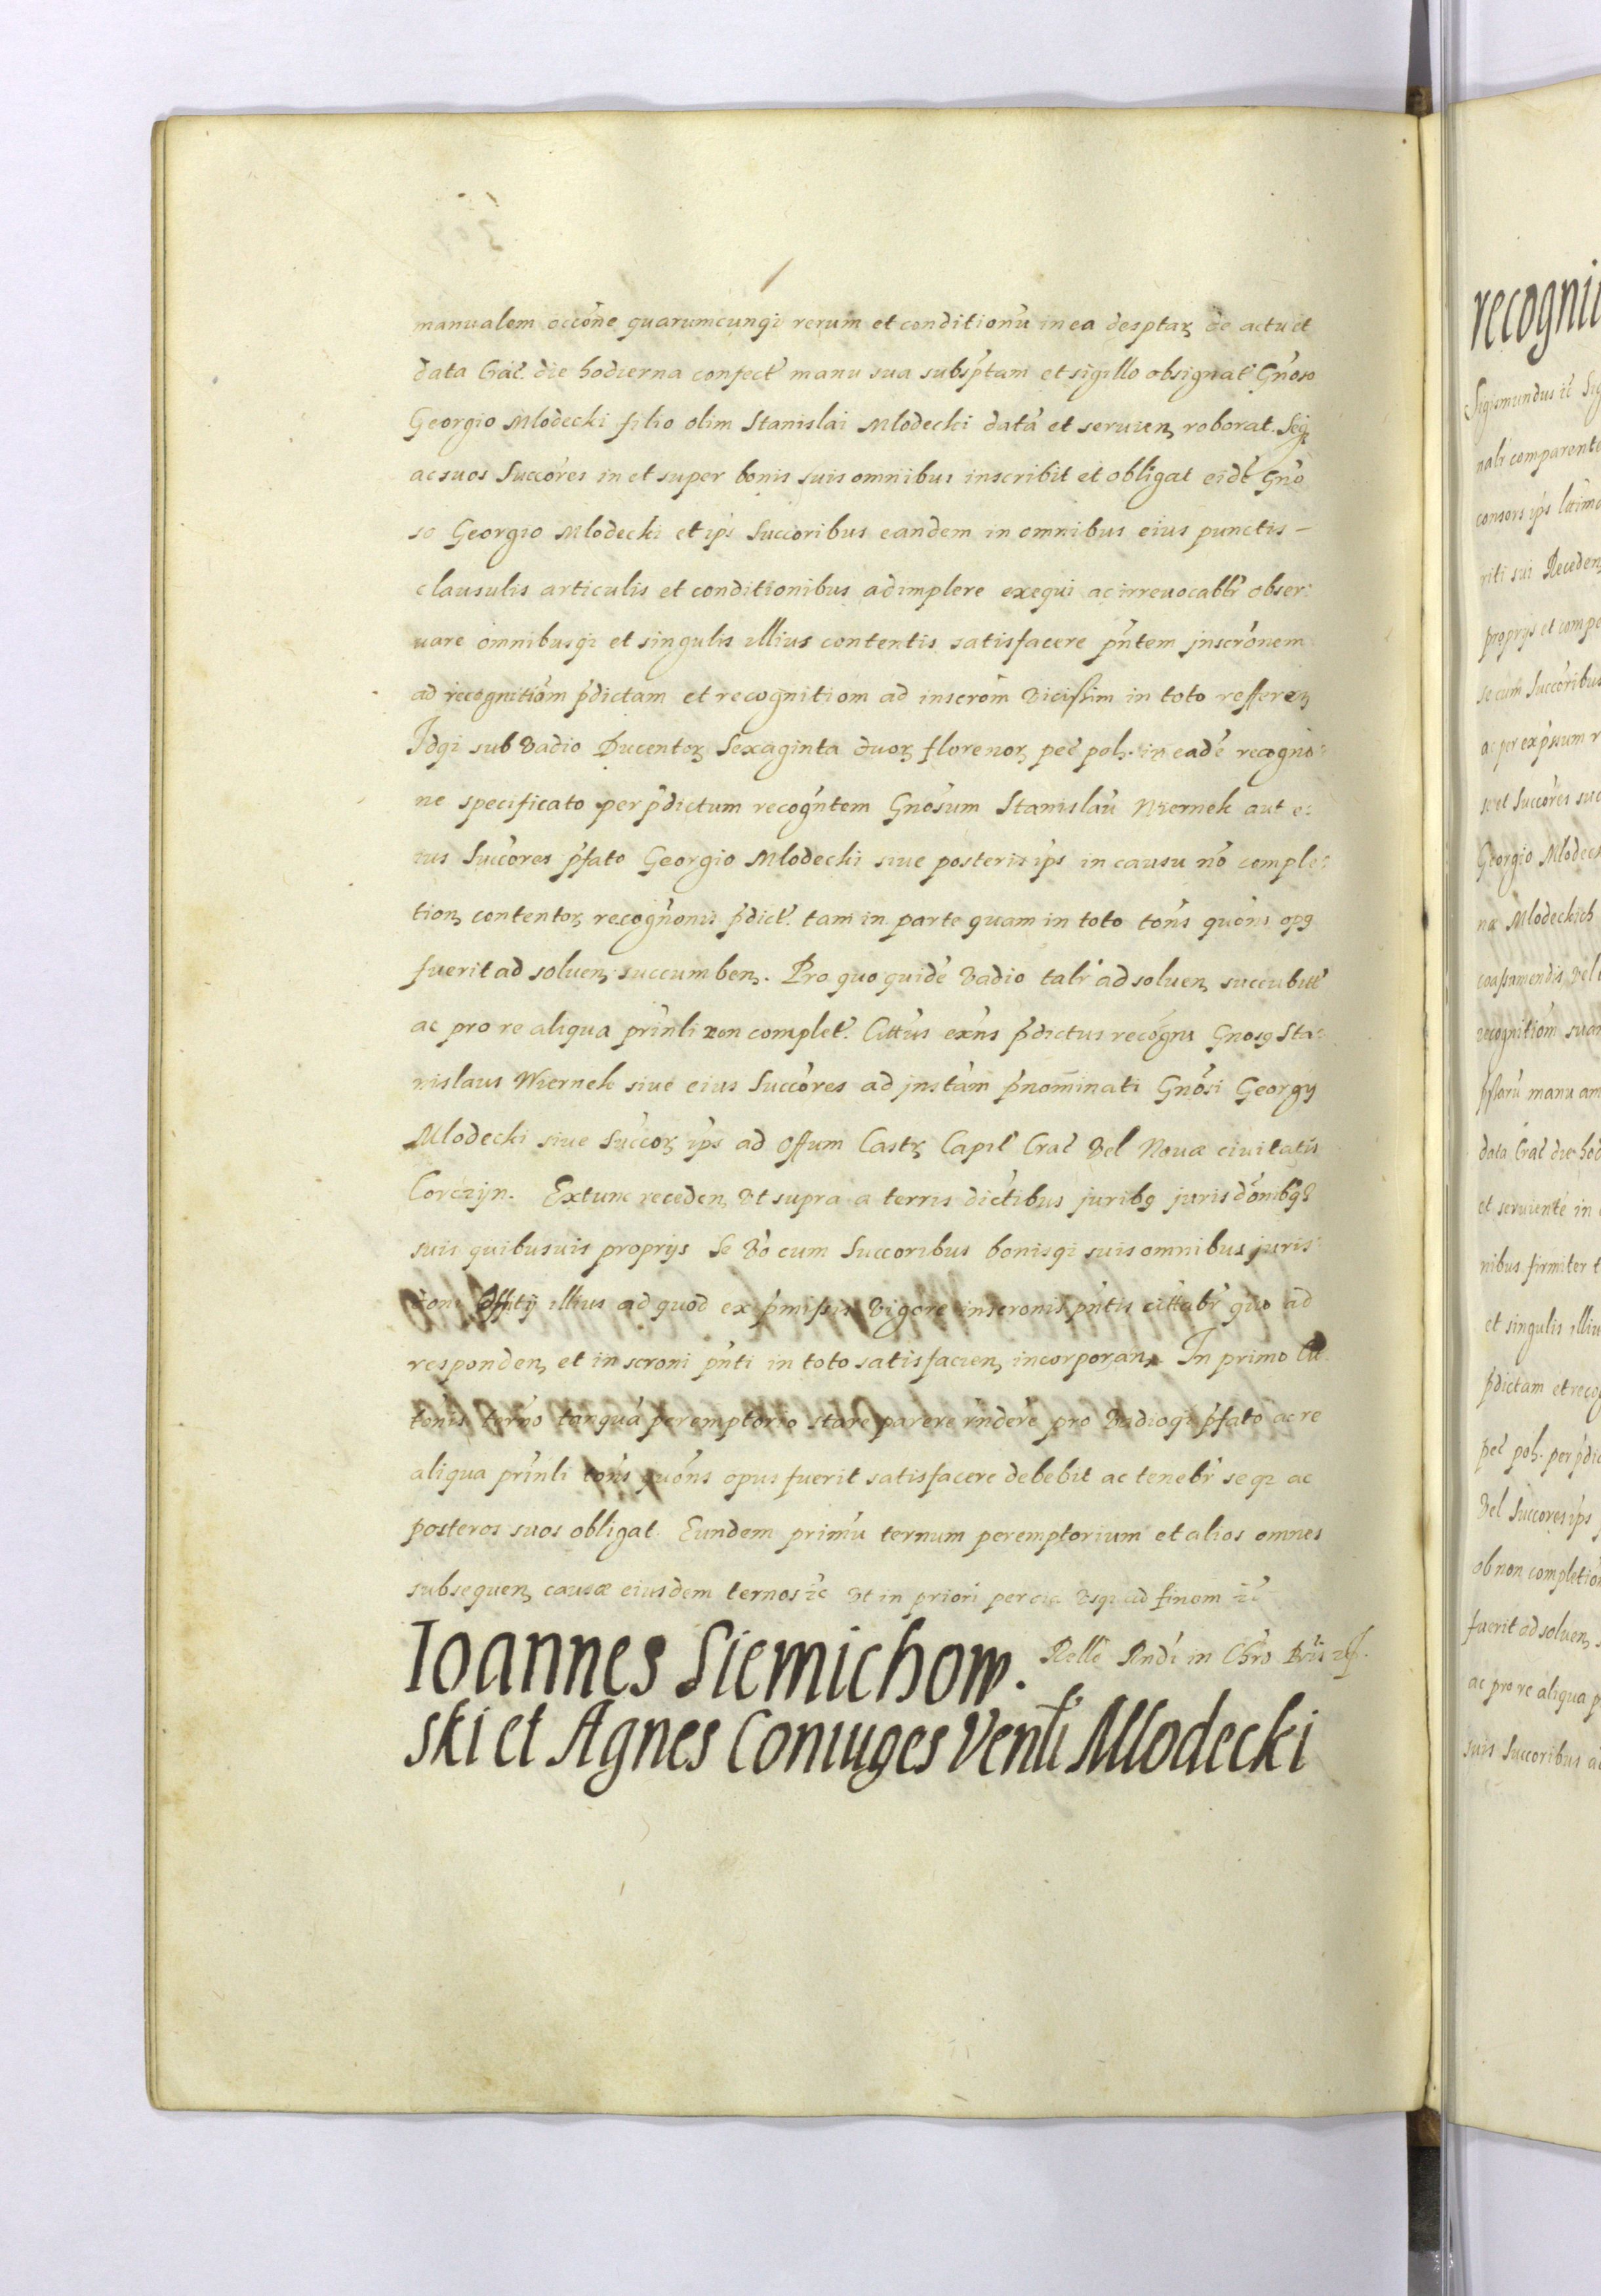 manualem occõne quarumcunqꝫ rerum et conditionũ in ea desptaꝝ de actu et
data Crac̃. die hodierna confect̃ manu sua subsp̃tam et sigillo obsignat̃ Gnõso
Georgio Mlodecki filio olim Stanislai Mlodecki datã et seruien roborat. Seqꝫ
ac suos Succõres in et super bonis suis omnibus inscribit et obligat eidẽ Gnõ
so Georgio Mlodecki et ip̃s Succoribus eandem in omnibus eius punctis –
clausulis articulis et conditionibus adimplere exequi ac irreuocabłr obser:
uare omnibusqꝫ et singulis illius contentis satisfacere pñtem inscrõnem
ad recognitiõm p̃dictam et recognitiom ad inscrõm vicissim in toto refferen
Idqꝫ sub vadio Ducentoꝝ Sexaginta duoꝝ florenoꝝ pec̃ pol. in eadẽ recogno:
ne specificato per p̃dictum recogñtem Gnõsum Stanislaũ Wiernek aut e:
ius Succõres p̃fato Georgio Mlodecki siue posteris ip̃s in causu nõ comple:
tion contentoꝝ recogñonis p̃dict̃. tam in parte quam in toto tõns quõns opꝰ
fuerit ad soluen succumben. Pro quo quidẽ vadio talr̃ ad soluen succubitt̃
ac pro re aliqua prĩnli non complet̃. Citt̃us exñs p̃dictus recogñs Gnosꝰ Sta:
nislaus Wiernek siue eius Succõres ad instãm p̃nominati Gnõsi Georgij
Mlodecki siue Succoꝝ ip̃s ad Offum Castꝝ Capit̃ Crac̃ vel Nouæ ciuitatis
Corczyn. Extunc receden vt supra a terris dictibus juribꝰ juris dõnibꝰqꝫ
suis quibusuis proprijs Se võ cum Succoribus bonisqꝫ suis omnibus juris
doni Offitij illius ad quod ex p̃missis vigore inscronis pñtis cittabr̃ quo ad
responden et in scroni pñti in toto satisfacien incorporan. In primo Cit
tõnis terñno tanquã peremptorio stare parere rñdere pro vadioqꝫ p̃fato ac re
aliqua prĩnli tõns quõns opus fuerit satisfacere debebit ac tenebr̃ seqꝫ ac
posteros suos obligat. Eundem primũ ternum peremptorium et alios omnes
subsequen causæ eiusdem ternos ꝛc vt in priori vsqꝫ ad finem ꝛc̃
Ioannes Siemichow.
Relle Rndi in Chro
ski et Agnes Coniuges Venłi Mlodecki
recogni
Sigismundus ꝛc̃ Sig
nalr̃ comparente
consors ip̃s lttima
riti sui Receden
proprijs et compe
se cum Succoribus
ac per exp̃ssum r
se et Succõres suo
Georgio Mlodeck
na Mlodeckich
vel
recognitiõm suam
manu am
data Crac̃ die hod
et seruientẽ in
nibus firmiter t
et singulis illiu
p̃dictam et recog
pec̃ pol. per p̃dic
vel Succores ip̃s
ob non completion
fuerit ad soluen s
ac pro re aliqua p
suis Succoribus ac